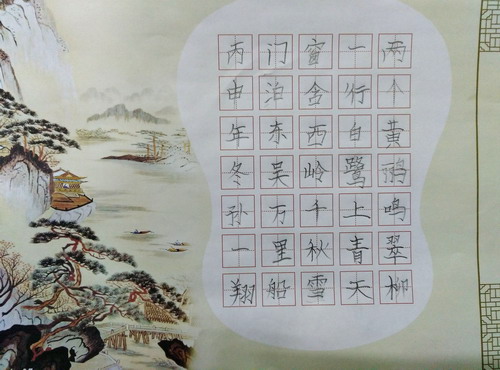 两个黄鹂鸣翠柳
一行白鹭上青天
窗舍西岭千秋雪
门泊东吴万里船
丙申年冬孙一翔